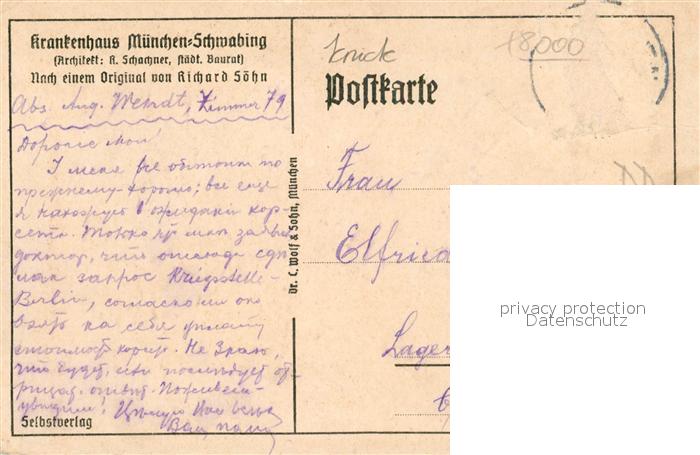 Krankenhaus München-Schwabing
(Architekt: R. Schachner, städt. Baurat)
Nach einem Original von Richard Söhn
Abs. Aug. Wendt, Zimmer 79
Дорогие мои!
У меня всё обстоит по
прежнему хорошо; все еще
я нахожусь в ожидании кор-
сета. Только
доктор, что отсюда сдѣ-
лан запрос Kriegsstelle
Berlin, согласно ли оно
взять на себя уплату
стоимость корсет. Не знаю,
что будет, или последует от-
рицат. отвѣт. Поживем
увидим! Цѣлую Вас всех
Ваш папа
Selbstverlag
Dr. C. Wolf & Sohn, München
knick
18,000
Postkarte
Frau
Elfried
Lager
privacy protection
Datenschutz